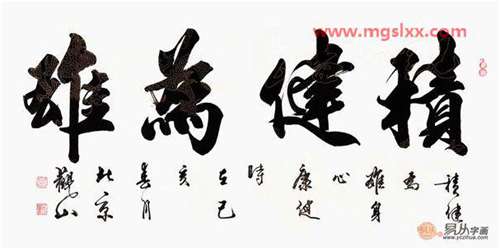 www.mgslxx.com
積健為雄
積健
為
雄身
心
康健
時
在己
亥
春月
北京
觀山
易从字画
www.yczihua.com